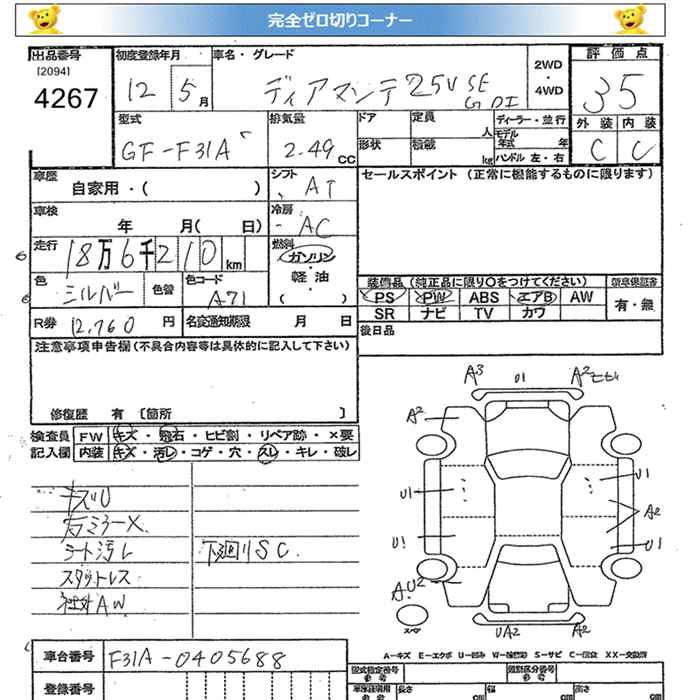 完全ゼロ切りコーナー
出品番号 初度登録年月 車名・グレード 2WD・4WD 評価点
[2094]
4267 12 5月 ディアマンテ 25V SE GDI 35
型式 排気量 ドア 定員 人 ディーラー・並行 外装 内装
GF-F31A 2.49 CC 形状 積載 kg モデル年式 年 ハンドル 左・右 C C
車歴 自家用・( ) シフト AT セールスポイント (正常に機能するものに限ります)
車検 年 月( 日) 冷房 AC
走行 18万6千210km 燃料 ガソリン・軽油 ( )
色 シルバー 色替 色コード A71
装備品 (純正品に限り○をつけてください) 新車保証書
PS PW ABS エアB AW 有・無
SR ナビ TV カワ
R券 12,760 円 名変通知期限 月 日 後日品
注意事項申告欄 (不具合内容等は具体的に記入して下さい)
修復歴 有 [箇所 ]
検査員 FW キズ・飛石・ヒビ割・リペア跡・×要
記入欄 内装 キズ・汚レ・コゲ・穴・スレ・キレ・破レ
キズU
シート汚レ 下廻りSC
スタットレス
社外AW
A3 U1 A2
A2
U1 U1
A2
U1 U1
AU2
スペア UA2 A2
A-キズ E-エクボ U-凹み W-補修跡 S-サビ C-腐食 XX-交換済
車台番号 F31A-0405688
型式指定番号 類別区分番号
登録番号 長さ cm 幅 cm 高さ cm